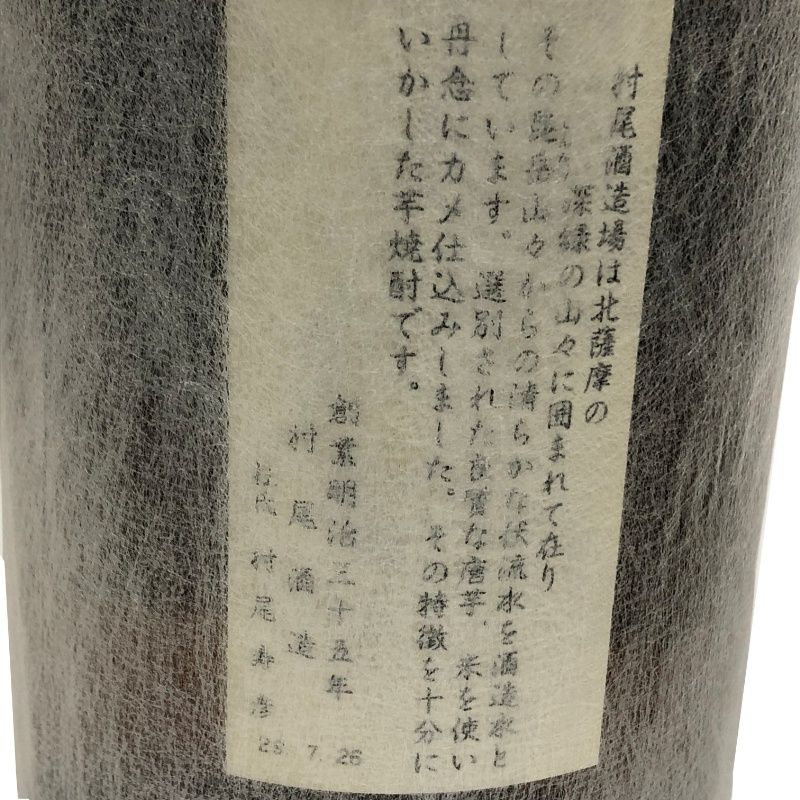 村尾酒造場は北薩摩の
深緑の山々に囲まれて在り
その昆岳山々からの清らかな伏流水を酒造水と
しています。選別された良質な唐芋、米を使い
丹念にカメ仕込みしました。その特徴を十分に
いかした芋焼酎です。
創業明治三十五年
村尾酒造
村尾寿彦
28.7.26